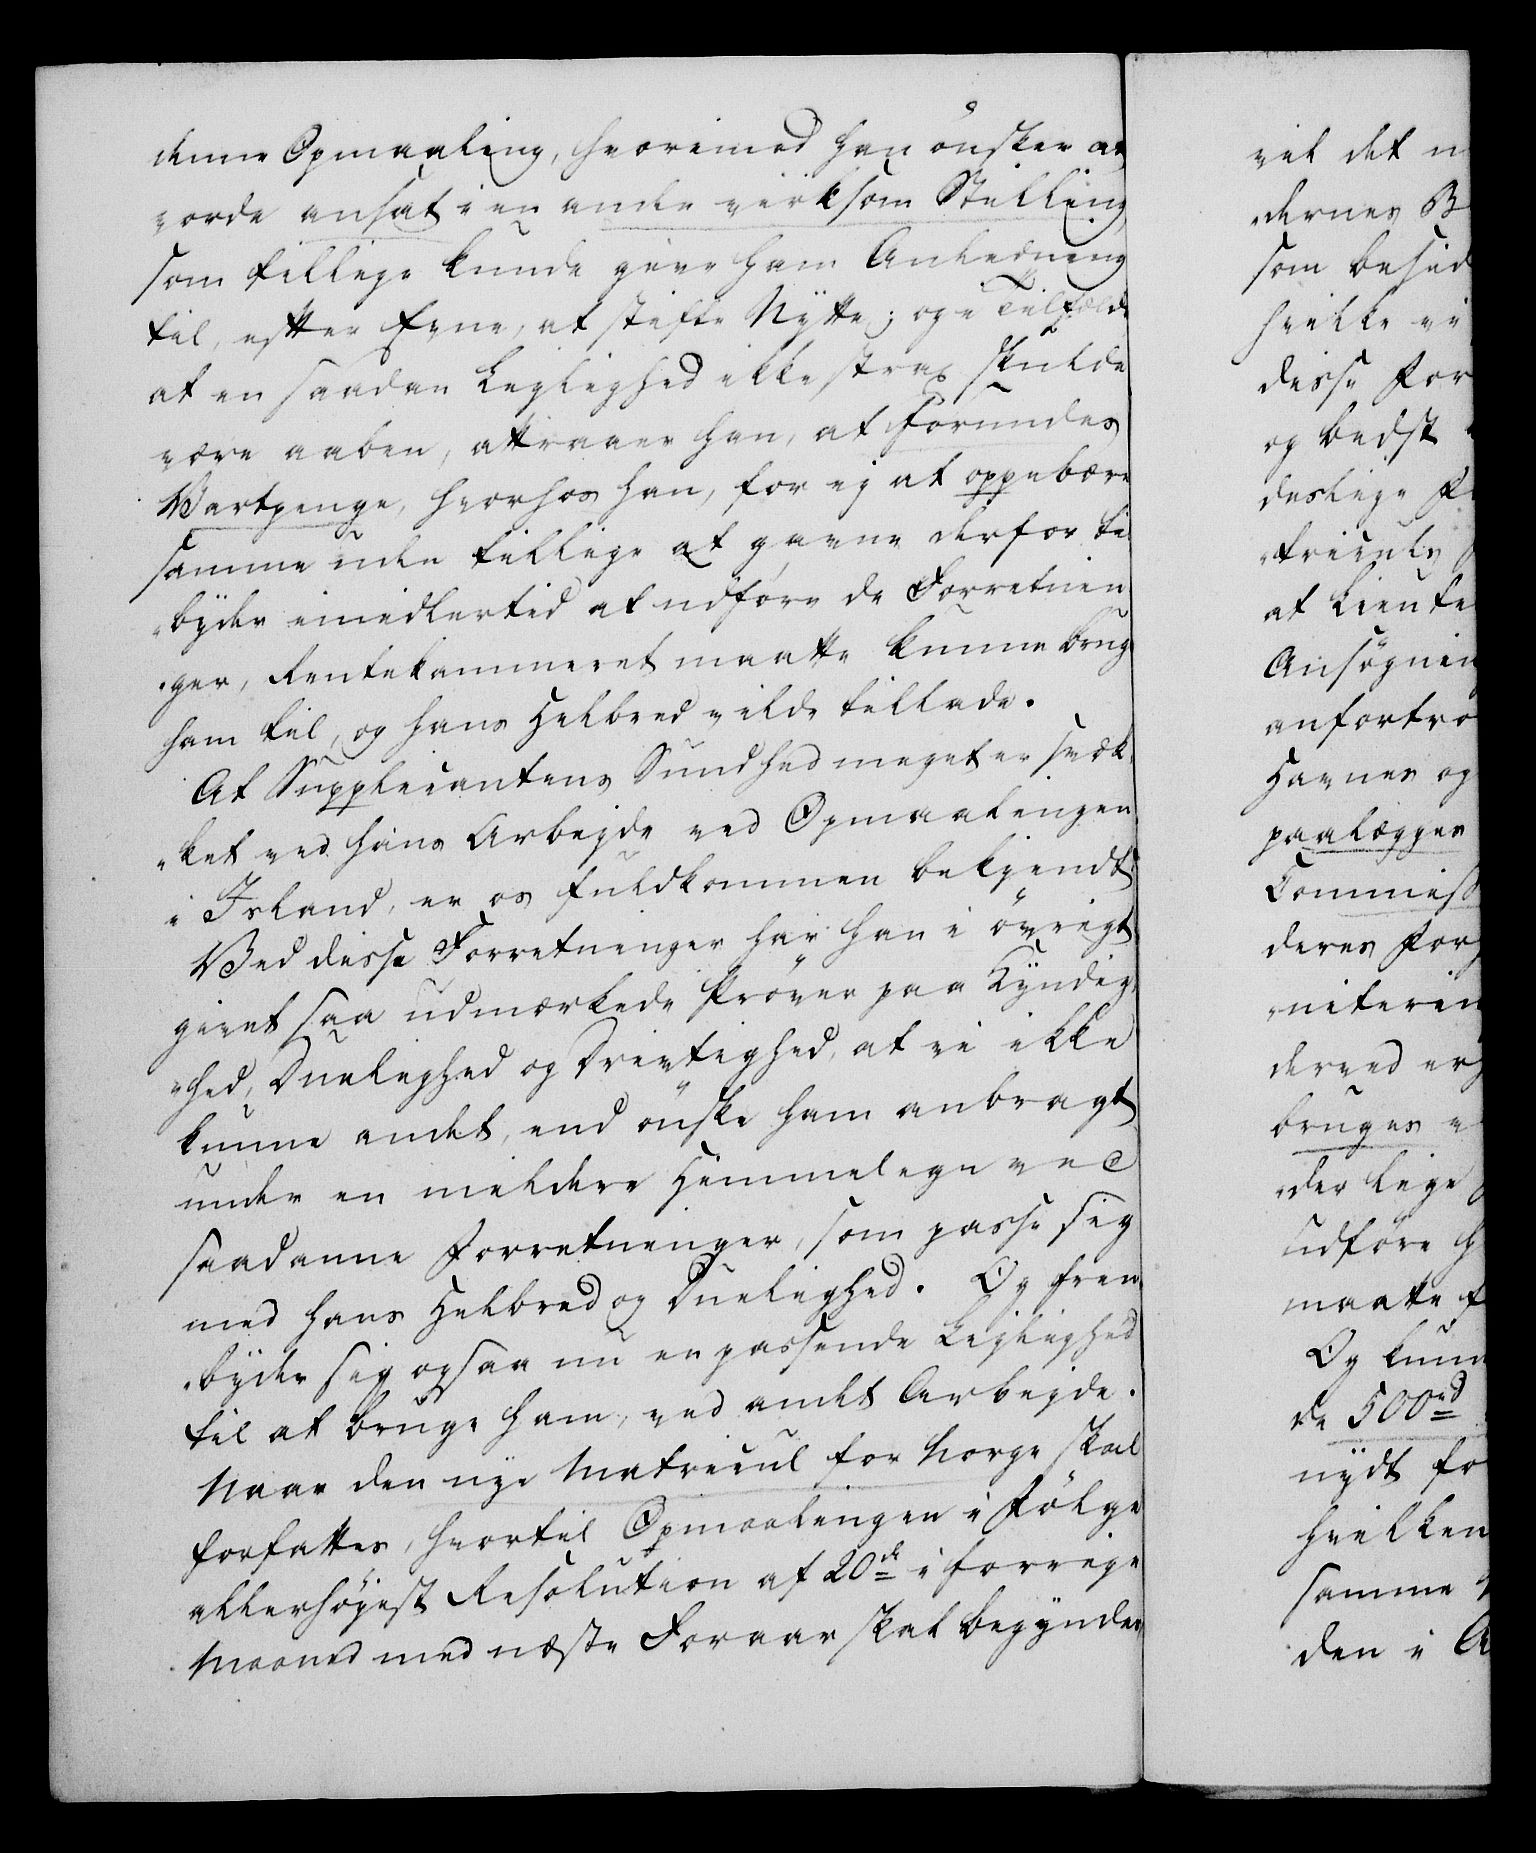 denne Opmaaling, hvorimod han ønsker at
vorde ansat i en anden virksom Stilling,
som tillige kunde give ham Anledning
til, efter Evne, at stifte Nytte; og i Tilfælde
at en saadan Leylighed ikke strax skulde
være aaben, attraaer han, at forundes
Vartpenge, hvorhos han, for ej at oppebære
samme uden tillige at gavne derfor til
„byder imidlertid at udføre de Forretnin
„ger, Rentekammeret maatte kunne bruge
ham til, og hans Helbred vilde tillade.
At Supplicantens Sundhed meget er svæk„
„ket ved hans Arbejde ved Opmaalingen
i Island, er os fuldkommen bekjendt.
Ved disse Forretninger har han i øvrigt
givet saa udmærkede Prøver paa Kyndig„
„hed, Duelighed og Drivtighed, at vi ikke
kunne andet, end ønske ham anbragt
under en mildere Himmelegn ved
saadanne Forretninger, som passe sig
med hans Helbred og Duelighed. Og frem
„byder sig ogsaa nu en passende Lejlighed
til at bruge ham, ved andet Arbejde.
Naar den nye Matricul for Norge skal
forfattes, hvortil Opmaalingen i Følge
allerhøyest Resolution af 20de i forrige
Maaned med næste Foraar skal begyndes,
vil det n
„dernes B
som besid
hvilke vi
disse For
og bedst
deslige F
„triculs
at Lieute
Ansøgnin
anfortro
Havnes og
paalægges
Commiss
deres For
„niterin
derved er
bruges
„der lige
udføre h
maatte f
Og kund
de 500rd
nydt fo
hvilken
samme
den i A